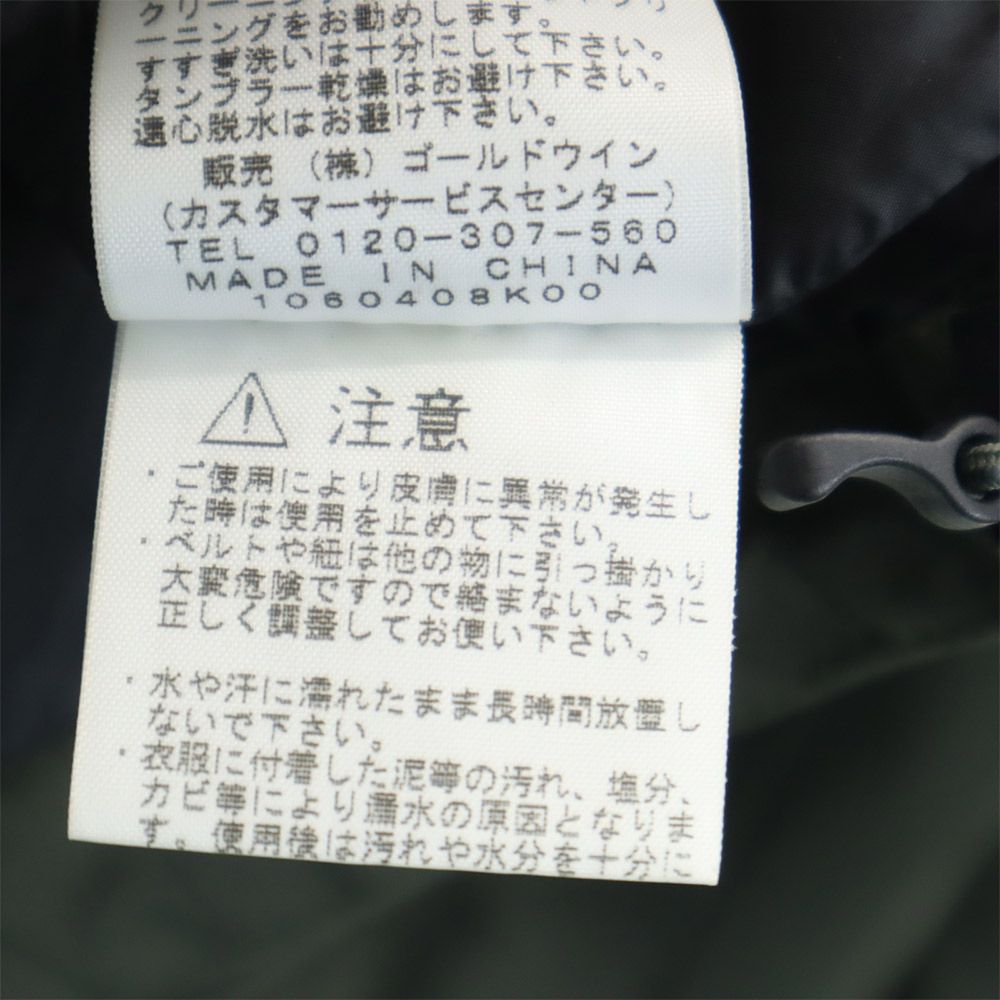 クリーニングをお勧めします。
すすぎ洗いは十分にして下さい。
タンブラー乾燥はお避け下さい。
遠心脱水はお避け下さい。
販売 (株) ゴールドウイン
(カスタマーサービスセンター)
TEL 0120-307-560
MADE IN CHINA
1060408K00
注意
・ご使用により皮膚に異常が発生し
た時は使用を止めて下さい。
・ベルトや紐は他の物に引っ掛かり
大変危険ですので絡まないように
正しく調整してお使い下さい。
・水や汗に濡れたまま長時間放置し
ないで下さい。
・衣服に付着した泥等の汚れ、塩分、
カビ等により漏水の原因となりま
す。使用後は汚れや水分を十分に